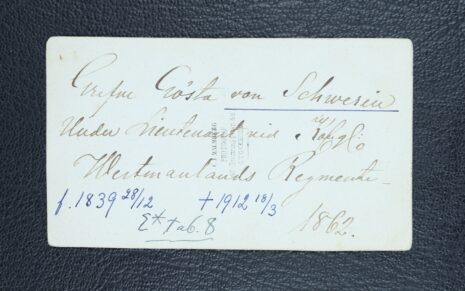 Grefve Gösta von Schwerin
Under Lieutenant vid Kongl:
Westmanlands Regemente
f. 1839 28/12 † 1912 18/3
tab. 8
1862.